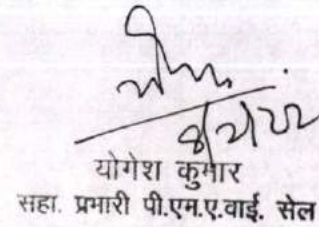 8/2/22
योगेश कुमार
सहा. प्रभारी पी.एम.ए.वाई. सेल